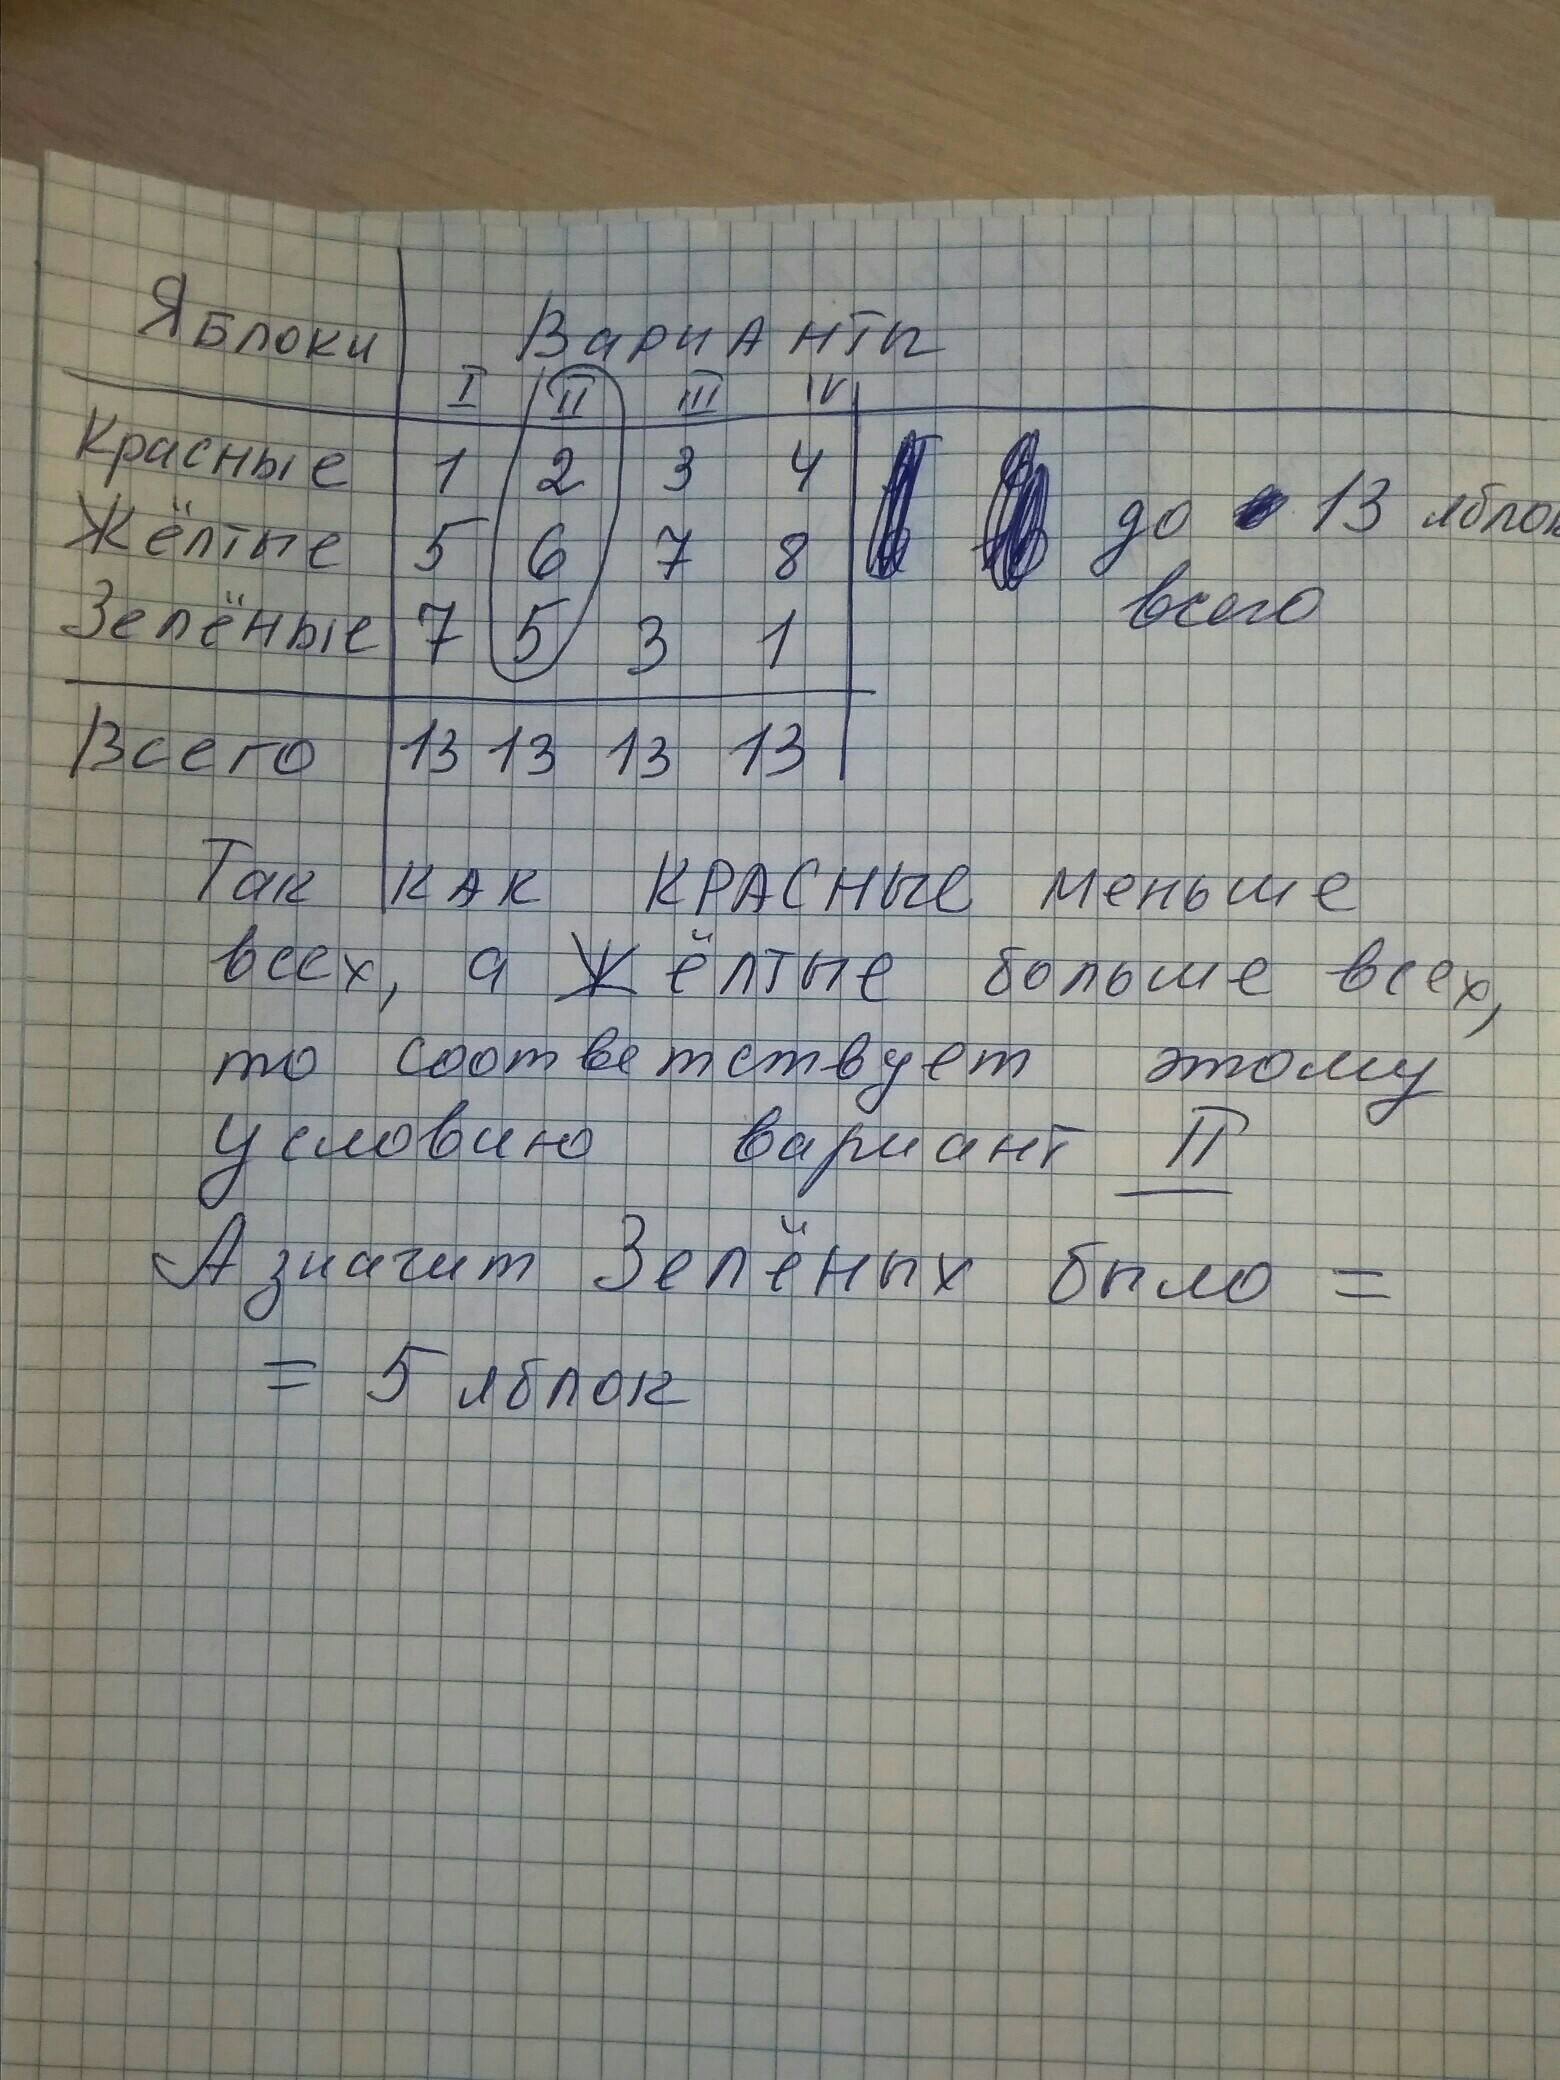 Яблоки Варианты
I II III IV
Красные 1 2 3 4
Жёлтые 5 6 7 8 до 13 яблок
Зелёные 7 5 3 1 всего
Всего 13 13 13 13
Так как красные меньше
всех, а Жёлтые больше всех,
то соответствует этому
условию вариант II
А значит Зелёных было =
= 5 яблок